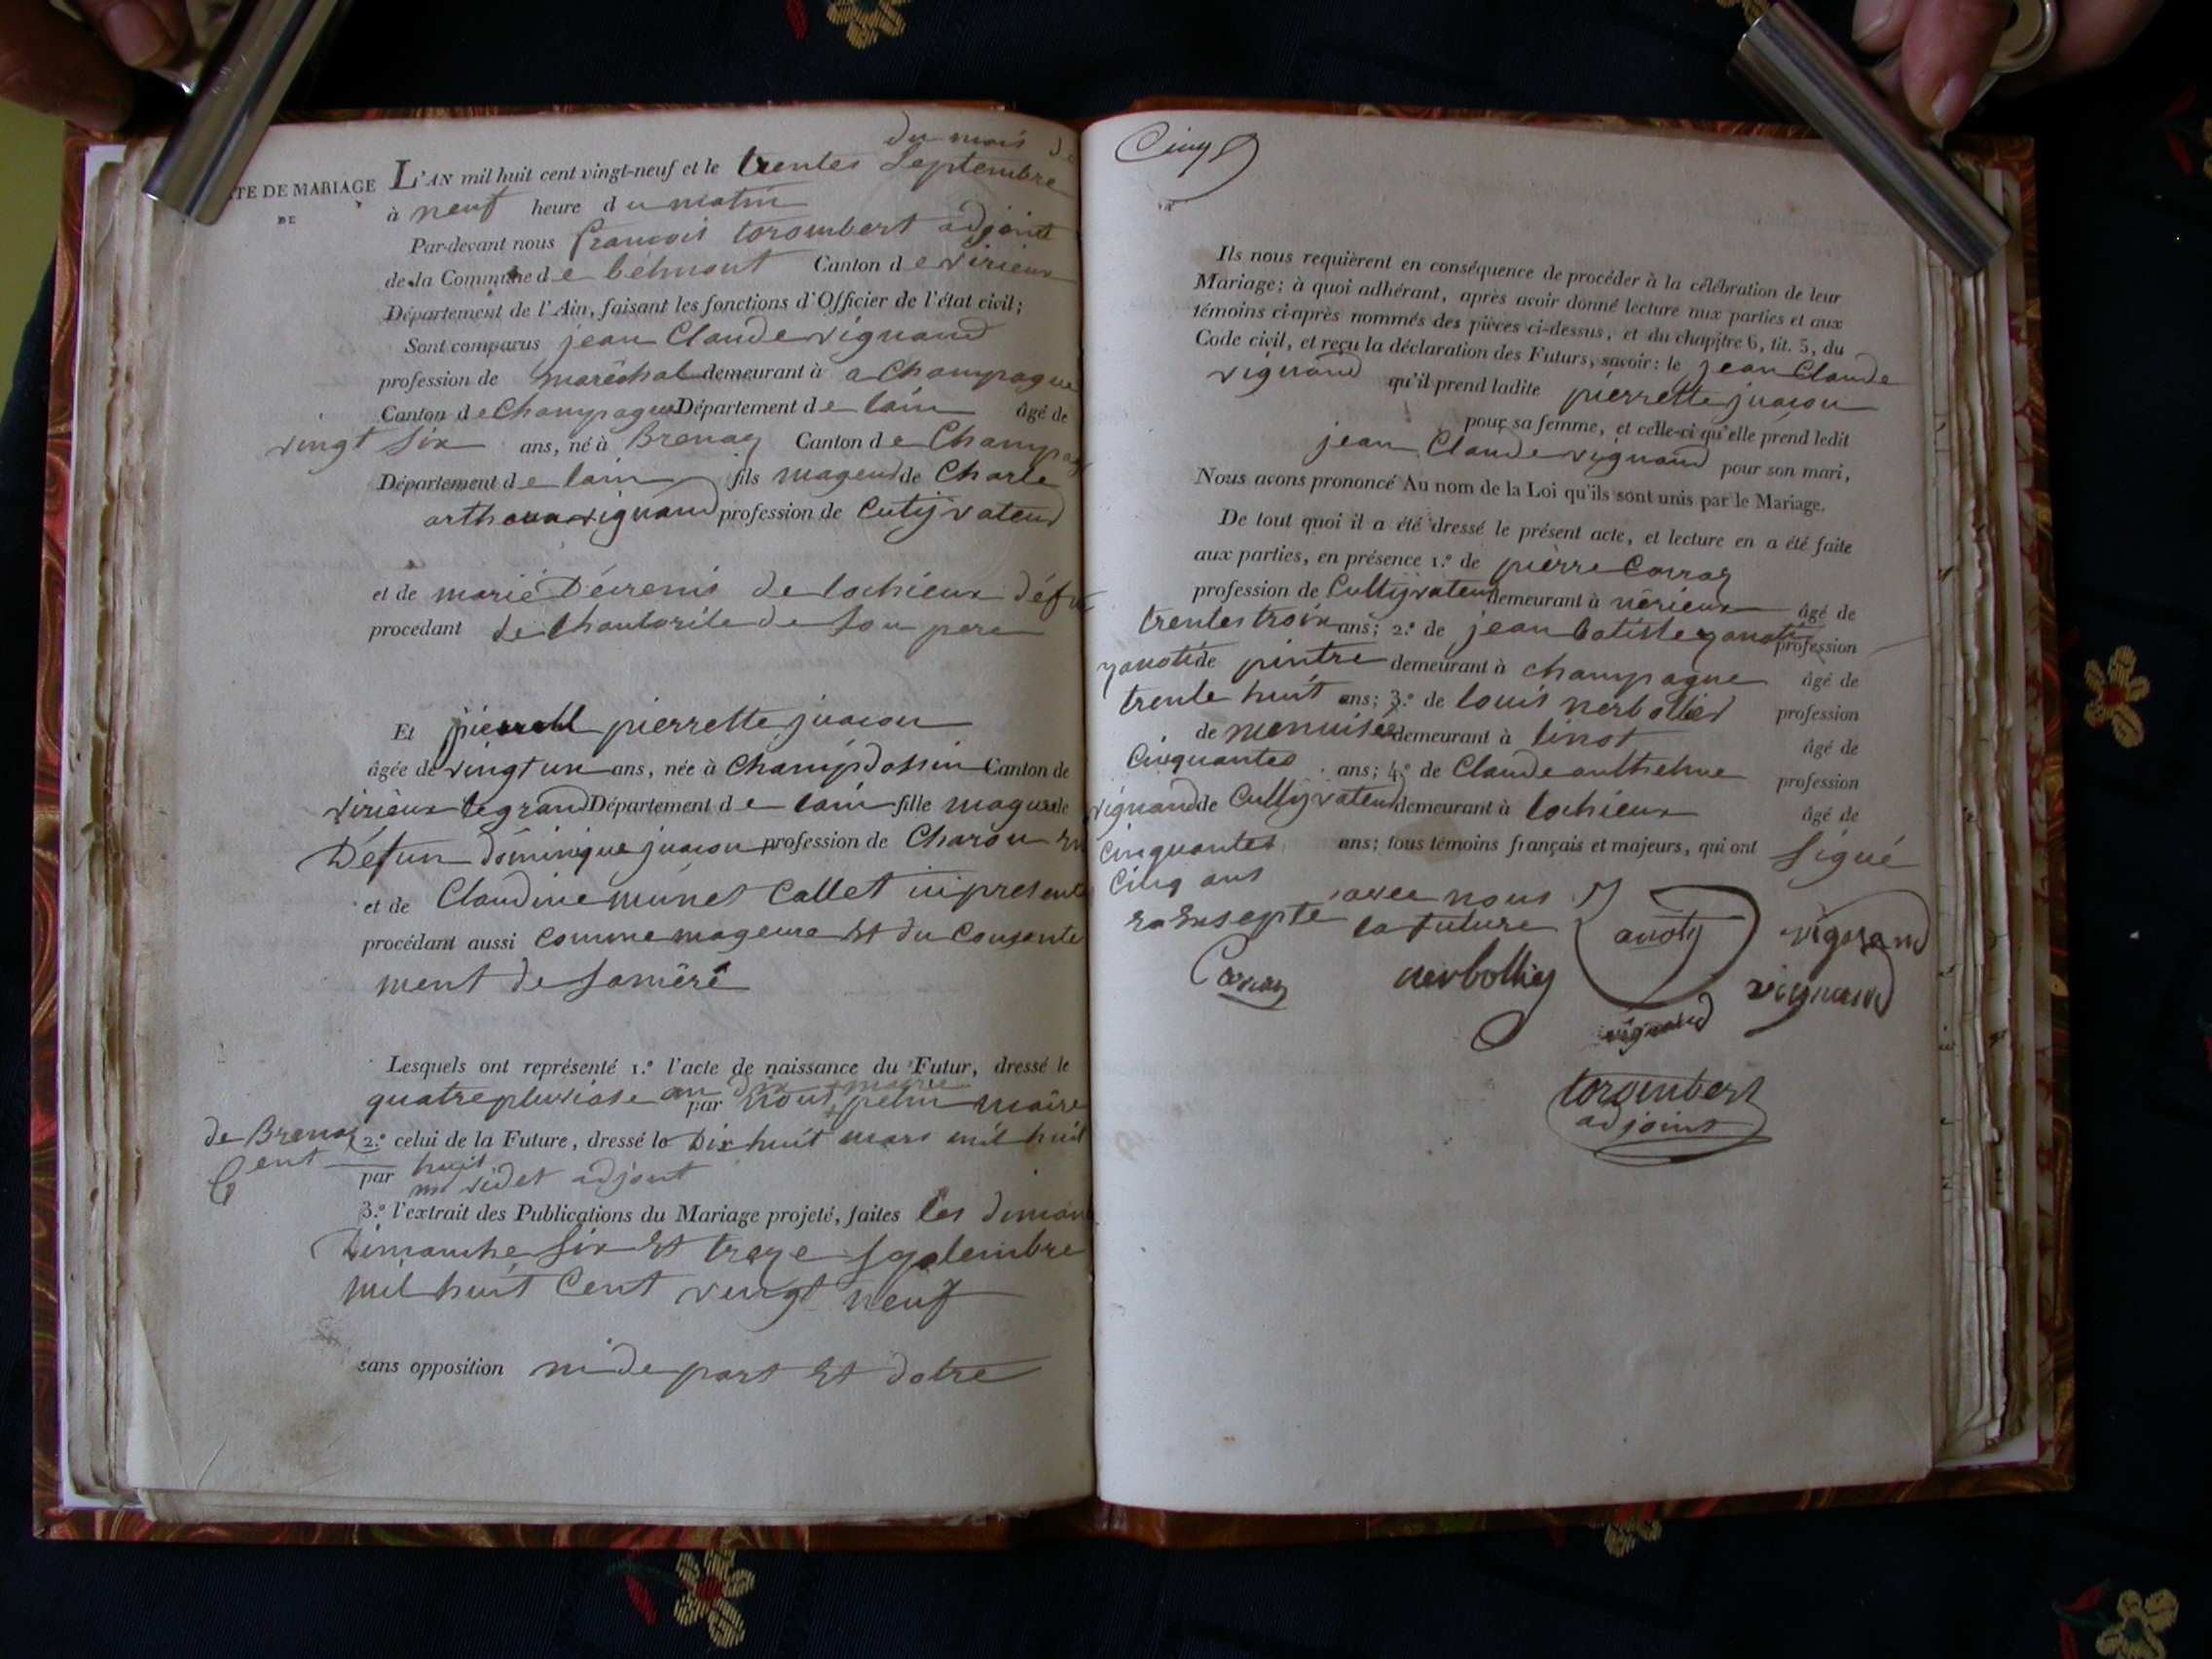 du mois de
TE DE MARIAGE L'AN mil huit cent vingt-neuf et le trentes Septembre
DE à neuf heure du matin
Par-devant nous francois torombert adjoint
de la Commune de bélmont Canton de virieux
Département de l'Ain, faisant les fonctions d'Officier de l'état civil;
Sont comparus jean Claude vignand
profession de maréchal demeurant à a Champagne
Canton de Champagne Département de lain âgé de
vingt six ans, né à Brenaz Canton de Champag
Département de lain fils mageur de Charle
vignand profession de Cutijvateur
et de marie de lochieux défu
procédant de lhautorite de son pere
Et pierrette juacon
âgée de vingt un ans, née à Champdossin Canton de
virieux legrand Département de lain fille mageure de
Défun dominique juacon profession de Charon
et de Claudine munet Callet ici presente
procédant aussi comme mageure et du Consente
ment de samère
Lesquels ont représenté 1.° l'acte de naissance du Futur, dressé le
quatre pluviose an dix
par nous maire
de Brenaz 2.° celui de la Future, dressé le Dix huit mars mil huit
Cent huit
par adjont
3.° l'extrait des Publications du Mariage projeté, faites les diman
Dimanche six et treze septembre
mil huit Cent vingt neuf
sans opposition ni de part et dotre
Cinq
Ils nous requièrent en conséquence de procéder à la célébration de leur
Mariage; à quoi adhérant, après avoir donné lecture aux parties et aux
témoins ci-après nommés des pièces ci-dessus, et du chapitre 6, tit. 5, du
Code civil, et reçu la déclaration des Futurs, savoir: le jean Claude
vignand qu'il prend ladite pierrette juacon
pour sa femme, et celle-ci qu'elle prend ledit
jean Claude vignand pour son mari,
Nous avons prononcé Au nom de la Loi qu'ils sont unis par le Mariage.
De tout quoi il a été dressé le présent acte, et lecture en a été faite
aux parties, en présence 1.° de pierre Corraz
profession de Cultijvateur demeurant à vérieux âgé de
trentes troix ans; 2.° de jean batiste zanoti profession
zanoti de pintre demeurant à champagne âgé de
trente huit ans; 3.° de louis nerbollier profession
de menuisier demeurant à linot âgé de
Cinquantes ans; 4.° de Claude anthelme profession
vignand de Cultyvateur demeurant à lochieux âgé de
Cinquantes ans; tous témoins français et majeurs, qui ont signé
Cinq ans
avec nous
la future
anoty
vignand
Corraz
nerbollier
vignand
vignand
torombert
adjoint